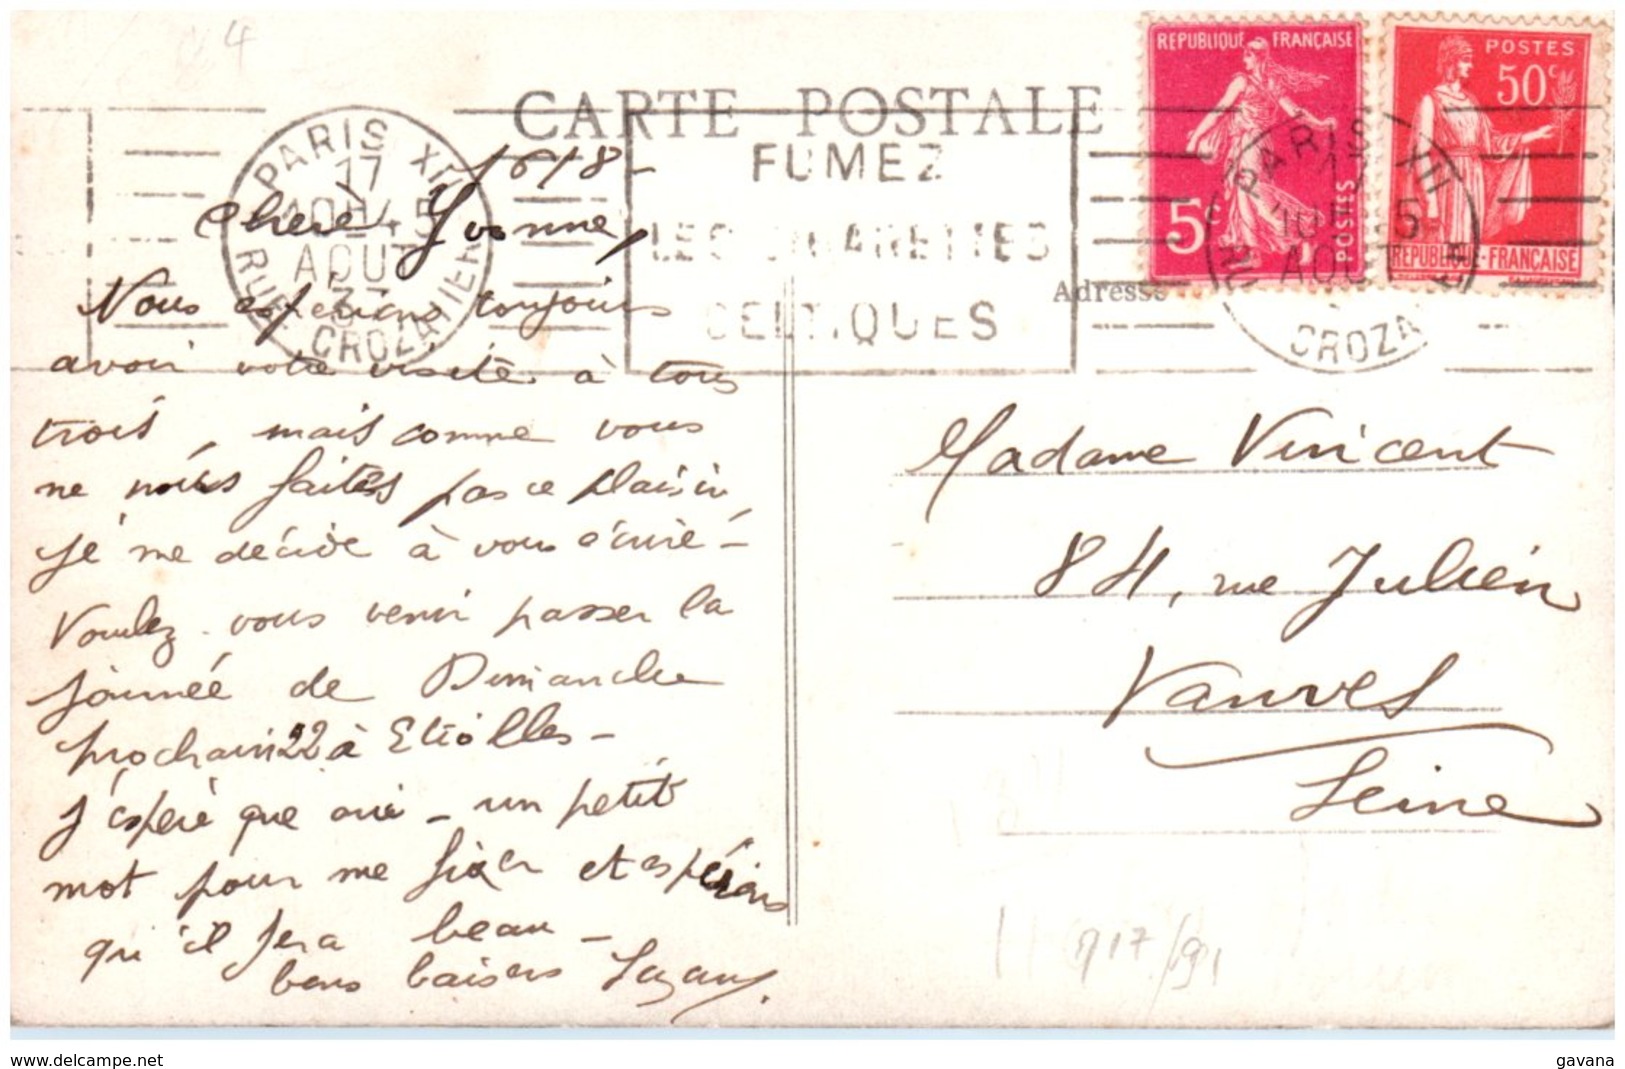 4
CARTE POSTALE
REPUBLIQUE FRANÇAISE
5c
POSTES
POSTES
50c
REPUBLIQUE-FRANÇAISE
PARIS XII
17
AOUT
RUE CROZATIER
FUMEZ
LES CIGARETTES
CELTIQUES
PARIS XII
CROZA
Adresse
16/8 -
Chere Yvonne,
Nous esperions toujours
avoir votre visite à tous
trois, mais comme vous
ne nous faites pas ce plaisir,
je me décide à vous écrire -
Voulez-vous venir passer la
journée de Dimanche
prochain 22 à Etiolles -
J'espère que oui - un petit
mot pour me fixer et espérons
qu'il fera beau -
bons baisers
Madame Vincent
84, rue Julien
Vanves
Seine
www.delcampe.net
gavana